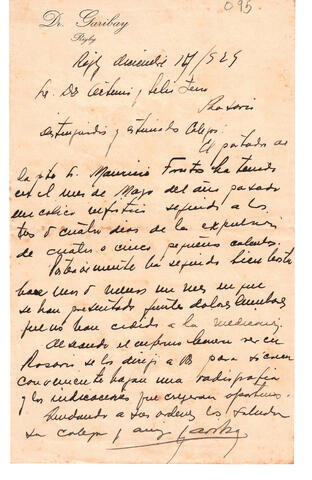 095.
Dr. Garibay
Rigby
Rigby diciembre 17/929
Sr. Dr Artemio y Lelio Zeno
Rosario
Distinguido y estimado Colega:
El portador de
la pte Sr. Mauricio Frontos ha tenido
en el mes de Mayo del año pasado
un cólico nefrítico seguido a los
tres o cuatro dias de la expulsion
de cuatro o cinco pequeños calculos.
Posteriormente ha seguido bien hasta
hace mas o menos un mes en que
se han presentado fuertes dolores lumbares
que no han cedido a la medicacion.
Deseando el enfermo hacerse ver en
Rosario se lo dirijo a Vd para si creen
conveniente hagan una radiografia
y las indicaciones que creyeran oportunas.
Quedando a sus ordenes los saluda
su colega y amigo Garibay